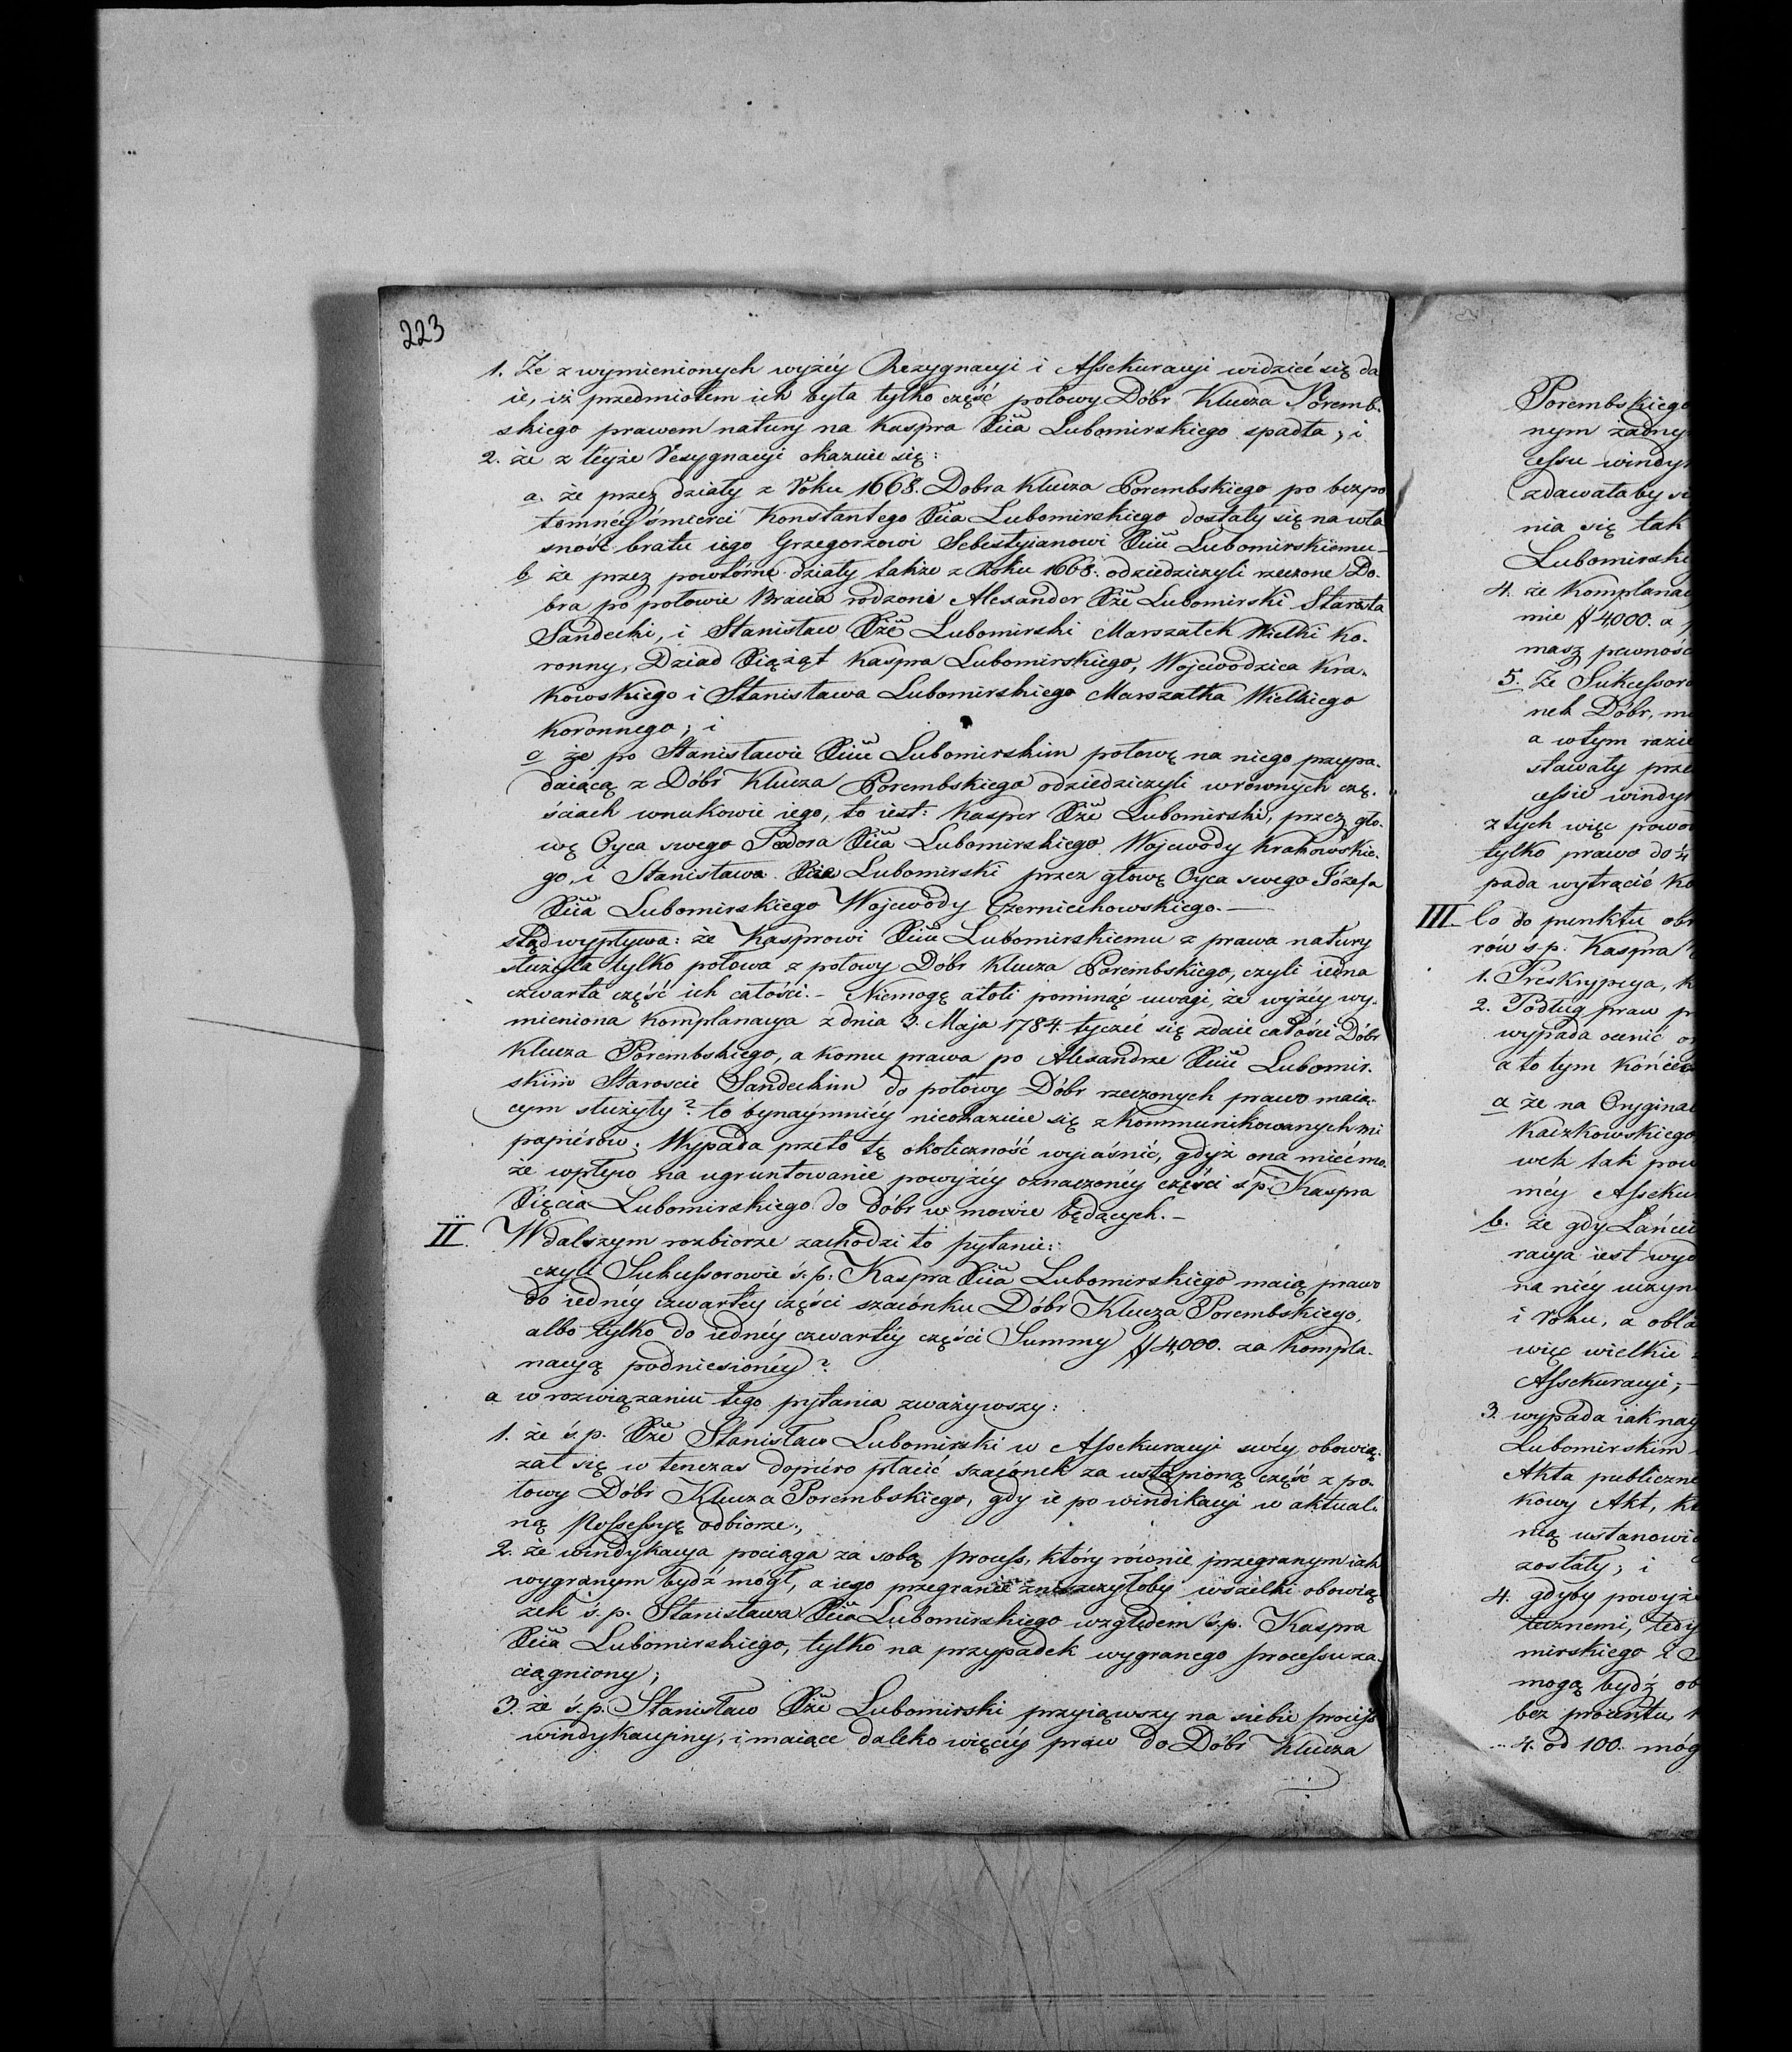 223
1. Że z wymienionych wyżéy Rezygnacyi i Assekuracyi widzieć się da
ie, iż przedmiotem ich była tylko część połowy Dóbr Klucza Poremb-
skiego prawem natury na Kaspra Xcia Lubomirskiego spadła; i
2. że z teyże Resygnacyi okazuie się:
a. że przez działy z Roku 1668. Dobra Klucza Porembskiego po bezpo
tomnéy śmierci Konstantego Xcia Lubomirskiego dostały się na wła
sność bratu iego Grzegorzowi Sebestyianowi Xciu Lubomirskiemu
b że przez powtórne działy także z Roku 1668. odziedziczyli rzeczone Do-
bra po połowie Bracia rodzoni Alexander Xże Lubomirski Starosta
Sandecki, i Stanisław Xże Lubomirski Marszałek Wielki Ko-
ronny, Dziad Xiążąt Kaspra Lubomirskiego, Wojewodzica Kra-
kowskiego i Stanisława Lubomirskiego Marszałka Wielkiego
Koronnego; i
c że po Stanisławie Xciu Lubomirskim połowę na niego przypa-
daiącą z Dóbr Klucza Porembskiego odziedziczyli w równych czę-
ściach wnukowie iego, to iest: Kasper Xże Lubomirski, przez gło-
wę Oyca swego Teodora Xcia Lubomirskiego Wojewody Krakowskie-
go, i Stanisława Xże Lubomirski przez głowę Oyca swego Józefa
Xcia Lubomirskiego Wojewody Czerniechowskiego. —
stąd wypływa: że Kasprowi Xciu Lubomirskiemu z prawa natury
służyła tylko połowa z połowy Dóbr Klucza Porembskiego, czyli iedna
czwarta część ich całości. - Niemogę atoli pominąć uwagi, że wyżéy wy-
mieniona Komplanacya z dnia 3. Maja 1784. tyczeć się zdaie całości Dóbr
Klucza Porembskiego, a komu prawa po Alexandrze Xciu Lubomir-
skim Staroscie Sandeckim do połowy Dóbr rzeczonych prawo maią-
cym służyły? to bynaymniéy nieokazuie się z kommunikowanych mi
papiérów. Wypada przeto tę okoliczność wyiaśnić, gdyż ona mieć mo-
że wpływ na ugruntowanie powyżéy oznaczonéy części ś.p. Kaspra
Xięcia Lubomirskiego do Dóbr w mowie będących. -
II. W dalszym rozbiorze zachodzi to pytanie:
czyli Sukcessorowie ś.p. Kaspra Xcia Lubomirskiego maią prawo
do iednéy czwartéy części szacónku Dóbr Klucza Porembskiego,
albo tylko do iednéy czwartéy części Summy # 4,000. za Kompla-
nacyą podniesionéy?
a w rozwiązaniu tego pytania zważywszy:
1. że ś.p. Xże Stanisław Lubomirski w Assekuracyi swéy obowią-
zał się w tenczas dopiéro płacić szacónek za ustąpioną część z po-
łowy Dóbr Klucza Porembskiego, gdy ie po windikacyi w aktual-
ną Possessyę odbiorze.,
2. że windykacya pociąga za sobą process, który równie przegranym iak
wygranym bydź mógł, a iego przegranie zniszczyłoby wszelki obowią
zek ś.p. Stanisława Xcia Lubomirskiego względem ś.p. Kaspra
Xcia Lubomirskiego, tylko na przypadek wygranego processu za-
ciągniony;
3. że ś.p. Stanisław Xże Lubomirski przyiąwszy na siebie process
windykacyiny, i maiące daleko więcéy praw do Dóbr Klucza
Porembskiego
nym żadny
cessu windy
zdawałaby si
nia się tak
Lubomirski
4. że Komplanac
mie # 4000. a
masz pewność
5. Że Sukcessoro
nek Dóbr, m
a w tym razie
stawały prze
cessie windy
z tych więc powo
tylko prawo do ¼
pada wytrącić Ko
III. Co do punktu ob
rów ś.p. Kaspra
1. Preskrypcya, k
2. Podług praw p
wypada ocenić
a to tym końce
a że na Orygina
Kaczkowskiego
wek tak pow
méy Asseku
b. że gdy Łańcu
racya iest wyd
na niéy uczyn
i Roku, a obla
więc wielkie
Assekuracyi;
3. wypada iak nay
Lubomirskim
Akta publiczne
kowy Akt, kt
nią ustanowi
zostały; i
4. gdyby powyże
tecznemi, tedy
mirskiego i
mogą bydź ob
bez procentu,
4. od 100. móg